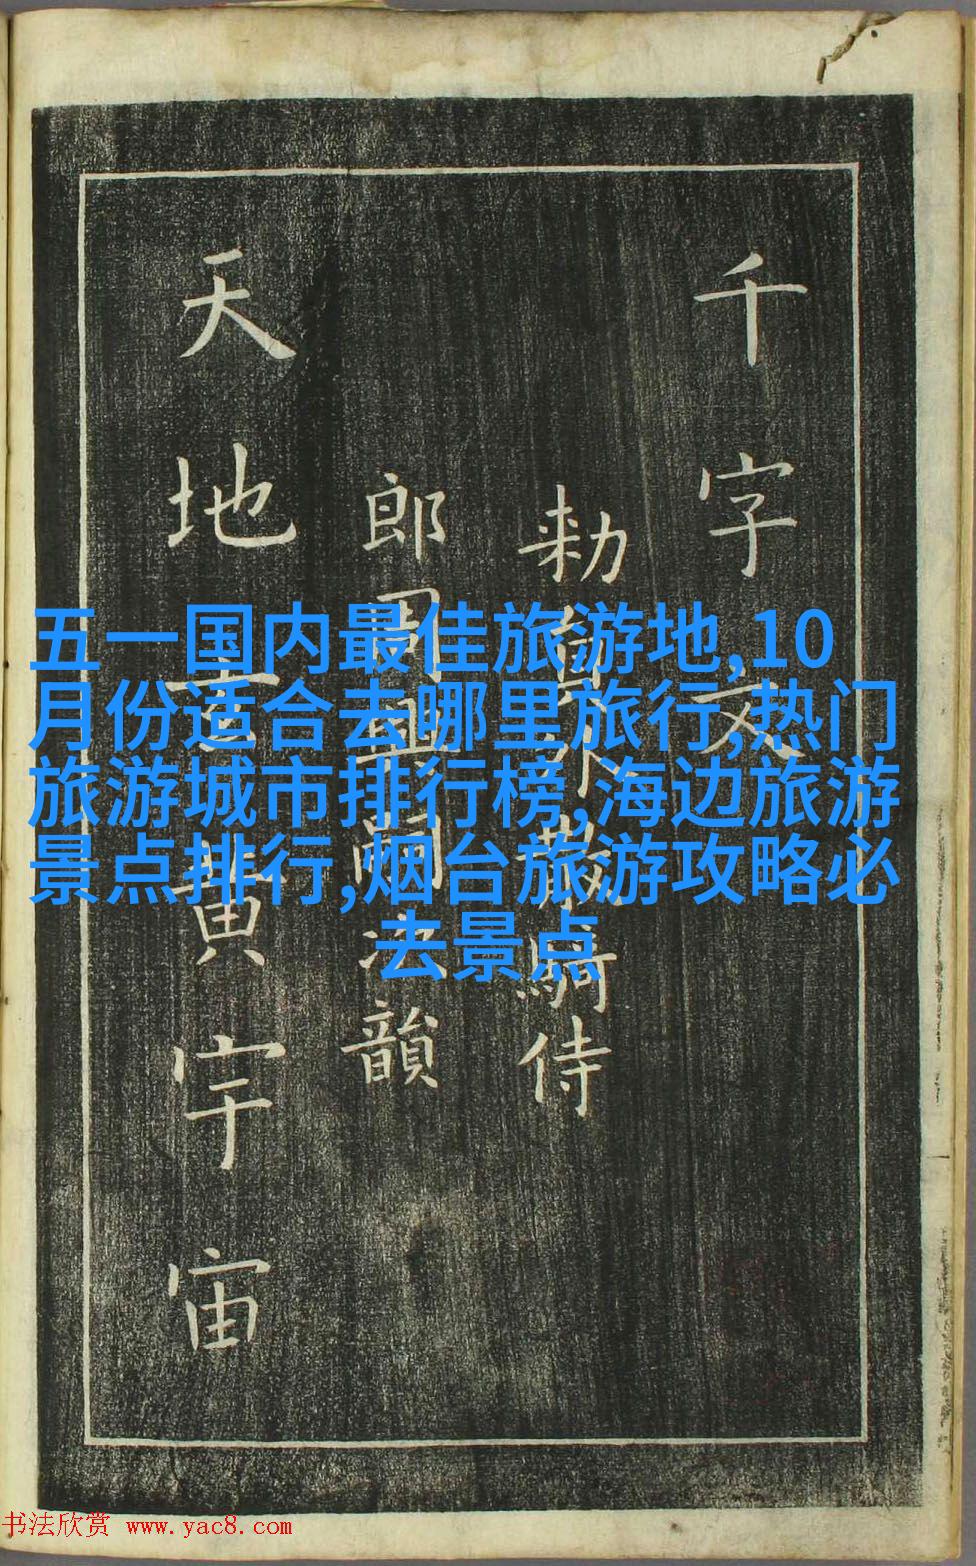 千字文
勑員外散騎侍
郎周興嗣次韻
天地玄黃宇宙
五一国内最佳旅游地,10
月份适合去哪里旅行,热门
旅游城市排行榜,海边旅游
景点排行,烟台旅游攻略必
去景点
书法欣赏 www.yac8.com